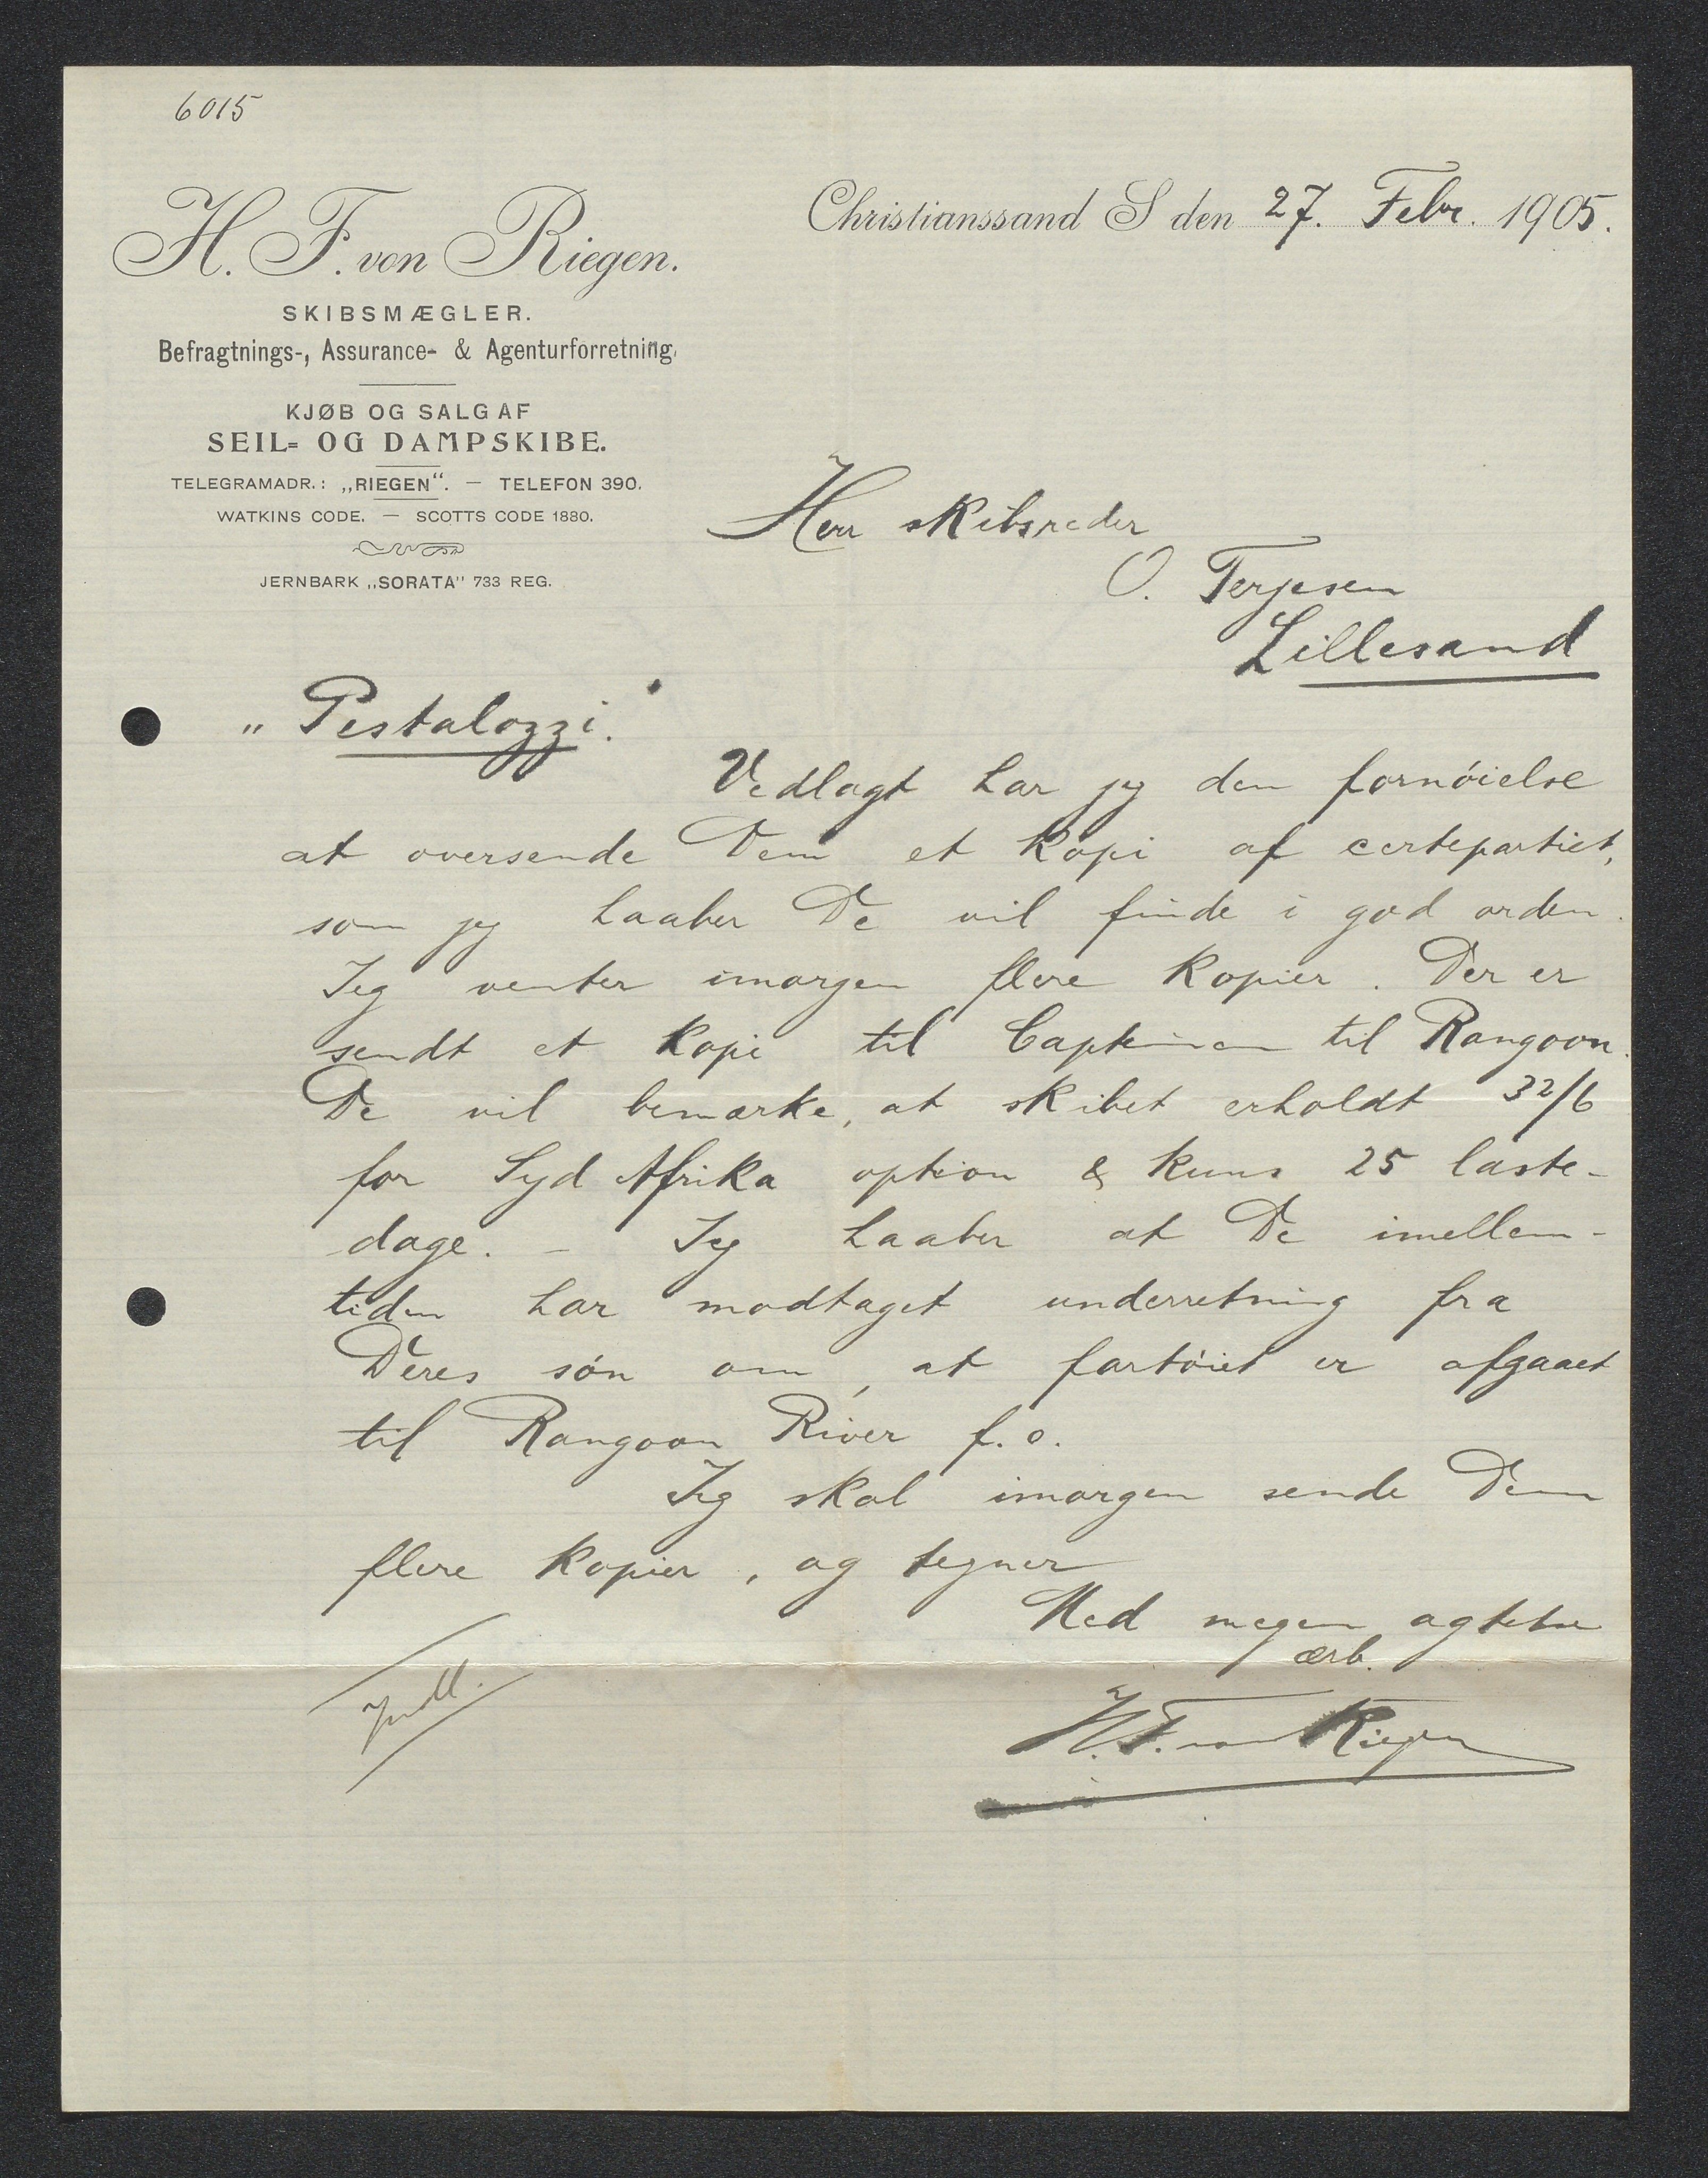 6015
H. F. von Riegen.
SKIBSMÆGLER.
Befragtnings-, Assurance- & Agenturforretning.
KJØB OG SALG AF
SEIL- OG DAMPSKIBE.
TELEGRAMADR.: „RIEGEN“. — TELEFON 390.
WATKINS CODE. — SCOTTS CODE 1880.
JERNBARK „SORATA“ 733 REG.
Christianssand S den 27. Febr. 1905.
Herr skibsreder
O. Terjesen
Lillesand
„Pestalozzi.“
Vedlagt har jeg den fornöielse
at oversende Dem et kopi af certepartiet,
som jeg haaber De vil finde i god orden.
Jeg venter imorgen flere kopier. Der er
sendt et kopi til Capteinen til Rangoon.
De vil bemærke, at skibet erholdt 32/6
for Syd Afrika option & kuns 25 laste-
dage. – Jeg haaber at De imellem-
tiden har modtaget underretning fra
Deres sön om, at fartöiet er afgaaet
til Rangoon River f.o.
Jeg skal imorgen sende Dem
flere kopier, og tegner
Med megen agtelse
ærb.
H. F. von Riegen